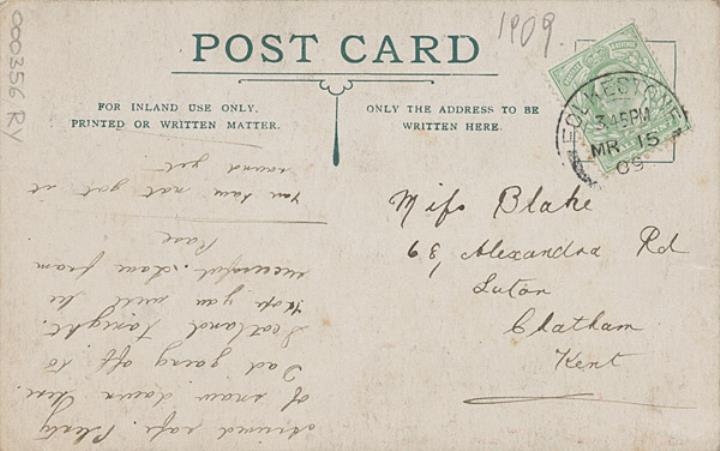 000356 RV
1909.
POST CARD
FOR INLAND USE ONLY.
PRINTED OR WRITTEN MATTER.
ONLY THE ADDRESS TO BE
WRITTEN HERE.
FOLKESTONE
3.45PM
MR 15
09
Miss Blake
68, Alexandra Rd
Luton
Chatham
Kent
arrived safe. Plenty
of snow down here.
Dad going off to
Scotland tonight.
Hope you will be
successful. Love from
Rose
not got it
round yet